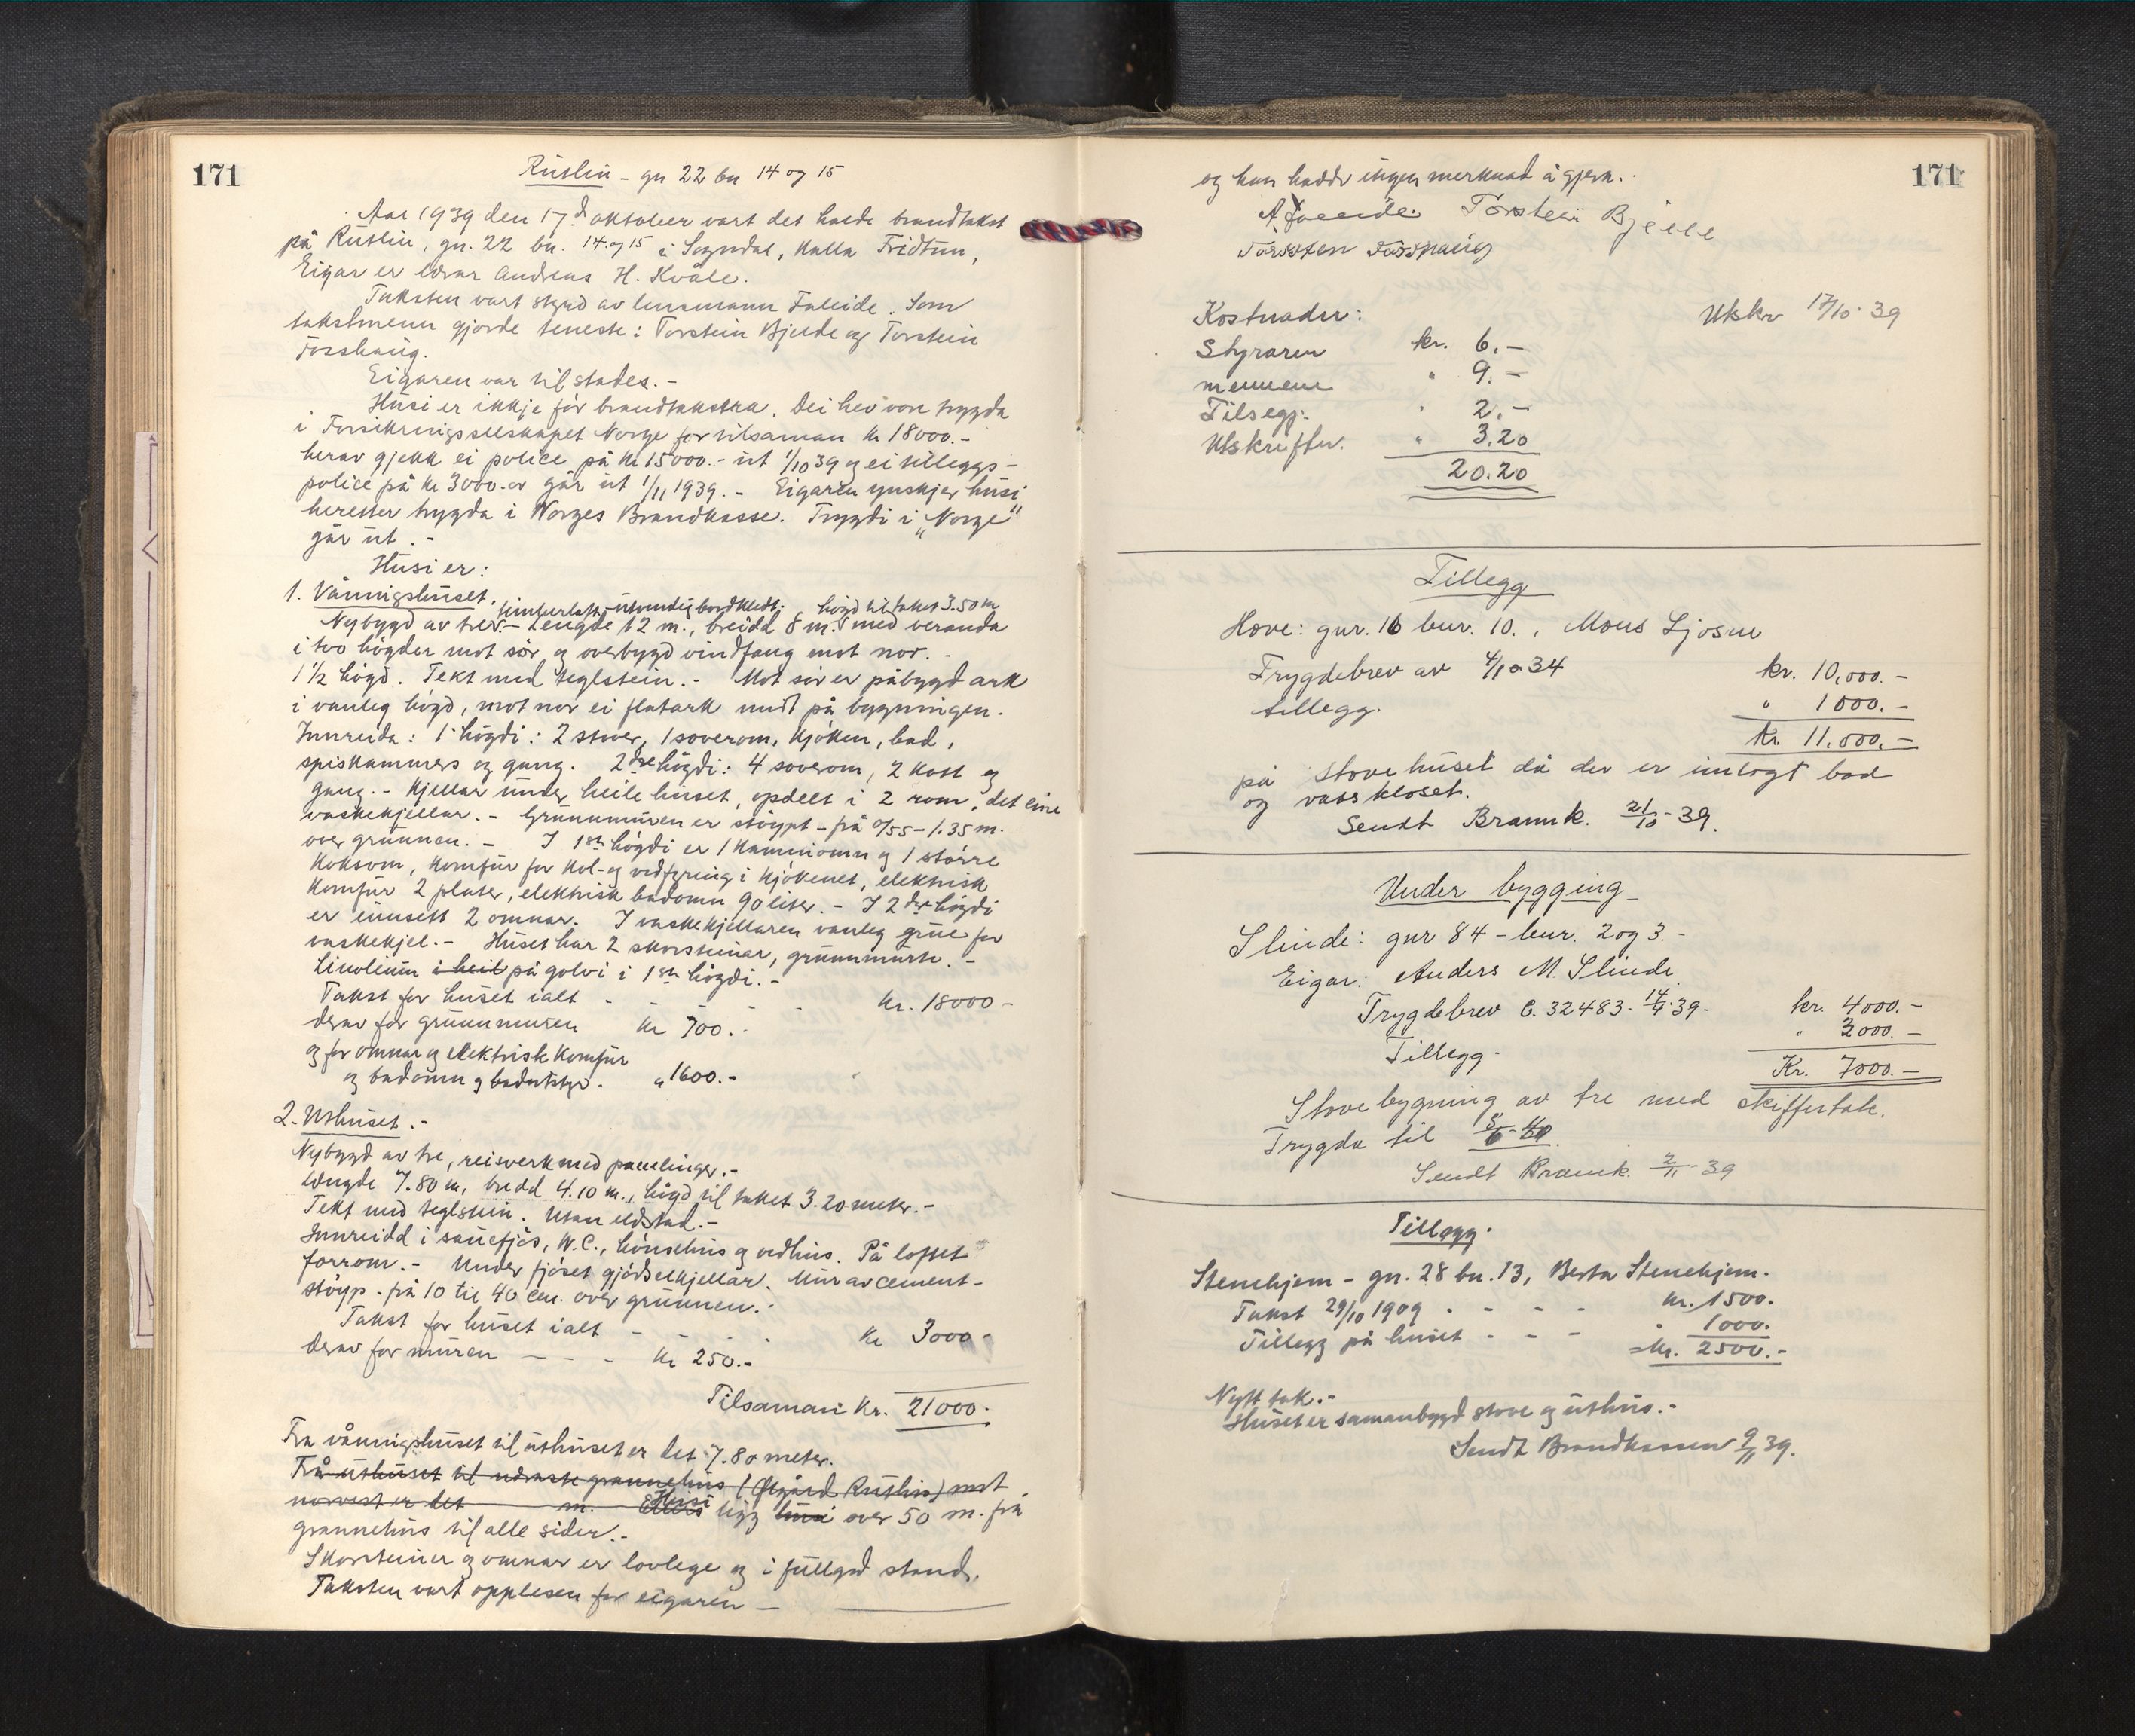 171
Rutlin - gn 22 bn 14 og 15
Aar 1939 den 17d oktober vart det halde brandtakst
på Rutlin, gn. 22 bn. 14 og 15 i Sogndal, kalla Fridtun,
Eigar er lærar Andreas H. Kvåle.
Taksten vart styrd av lensmann Faleide. Som
takstmenn gjorde teneste: Torstein Bjelde og Torstein
Fosshaug.
Eigaren var tilstades.-
Husi er ikkje før brandtaksera. Dei hev vore trygda
i Forsikringsselskapet Norge for tilsaman kr 18000.-
herav gjekk ei police på kr 15000.- ut 1/10 39 og ei tilleggs-
police på kr 3000.- går ut 1/11 1939. - Eigaren ynskjer husi
heretter trygda i Norges Brandkasse. Trygdi i "Norge"
går ut.-
Husi er:
1. Våningshuset.
timberlaft, utvendig bordkledt. högd til taket 3.50 m
Nybygd av tre. - Lengde 12 m., breidd 8 m. med veranda
i tvo högder mot sör og overbygd vindfang mot nor. -
1 1/2 högd. Tekt med teglstein. - Mot sör er påbygd ark
i vanleg högd, mot nor ei flatark midt på bygningen.
Innreida: 1. högdi: 2 stover, 1 soverom, kjöken, bad,
spiskammers og gang. 2dre högdi: 4 soverom, 2 kott og
gang. - Kjellar under heile huset, opdelt i 2 rom, det eine
vaskekjellar. - Grunnmuren er støypt - frå 0/55 - 1.35 m.
over grunnen. - I 1ste högdi er 1 kaminomn og 1 större
koksomn, komfur for kol- og vedfyring i kjökenet, elektrisk
komfur 2 plater, elektrisk badomn 90 liter. - I 2dre högdi
er innsett 2 omnar. I vaskekjellaren vanleg grue for
vaskekjel. - Huset har 2 skorsteinar, grunnmurte. -
Linolium i heil på golvi i 1ste högdi. -
Takst for huset ialt - - - - kr. 18000 -
derav for grunnmuren kr 700.-
og for omnar og elektrisk komfur
og badomn og badutstyr. " 1600.-
2. Uthuset.-
Nybygd av tre, reisverk med panelinger.-
Lengde 7.80 m, bredd 4.10 m., högd til taket 3.20 meter.-
Tekt med teglstein. Utan eldstad.-
Innreidd i sauefjös, W.C., hönsehus og vedhus. På loftet
forrom.- Under fjöset gjödselkjellar. Mur av cement-
stöyp - frå 10 til 40 cm. over grunnen.-
Takst for huset ialt - - - - kr 3000-
derav for muren - - - kr 250.-
Tilsaman kr. 21000.-
Fra våningshuset til uthuset er det 7.80 meter.
Frå uthuset til næraste grannehus (Ølgård Rutlin) mot
norvest er det m. Ellers Husi ligg husi over 50 m. frå
grannehus til alle sider.-
Skorsteiner og omnar er lovlege og i fullgod stand.
Taksten vart opplesen for eigaren -
171
og han hadde ingen merknad å gjera.
A Faleide. Torstein Bjelde
Torstein Fosshaug
Kostnader: Utskr 17/10-39
Styraren kr. 6.-
mennene " 9.-
Tilsegj. " 2.-
Utskrifter. " 3.20
20.20
Tillegg
Hove: gnr. 16 bnr. 10., Mons Ljosne
Trygdebrev av 4/10 34 kr. 10,000.-
tillegg. " 1000.-
kr. 11.000.-
på stovehuset då der er innlagt bad
og vasskloset.
Sendt Brannk. 21/10-39.
Under bygging
Slinde: gnr 84 - bnr. 2 og 3.-
Eigar: Anders M. Slinde
Trygdebrev C. 32483. 14/4-39- kr. 4000.-
Tillegg- " 3000.-
Kr. 7000.-
Stovebygning av tre med skiffertak.
Trygda til 5/6-40.
Sendt Brannk. 2/11-39
Tillegg.
Stenehjem - gn. 28 bn. 13, Berta Stenehjem.
Takst 29/10 1909 - - - - kr. 1500.
Tillegg på huset - - - " 1000.
=kr. 2500.-
Nytt tak.-
Huset er samanbygd stove og uthus.-
Sendt Brandkassen 9/11 39.